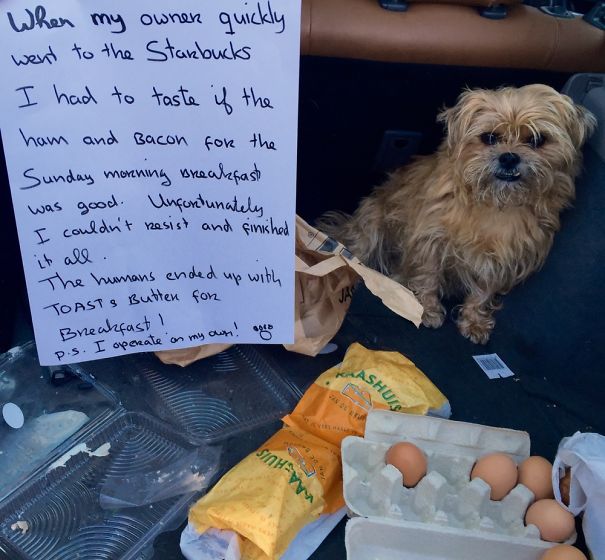 When my owner quickly
went to the Starbucks
I had to taste if the
ham and Bacon for the
Sunday morning Breakfast
was good. Unfortunately
I couldn't resist and finished
it all.
The humans ended up with
TOAST & Butter for
Breakfast!
P.S. I operate on my own!
KAASHUIS
KAASHUIS
JA